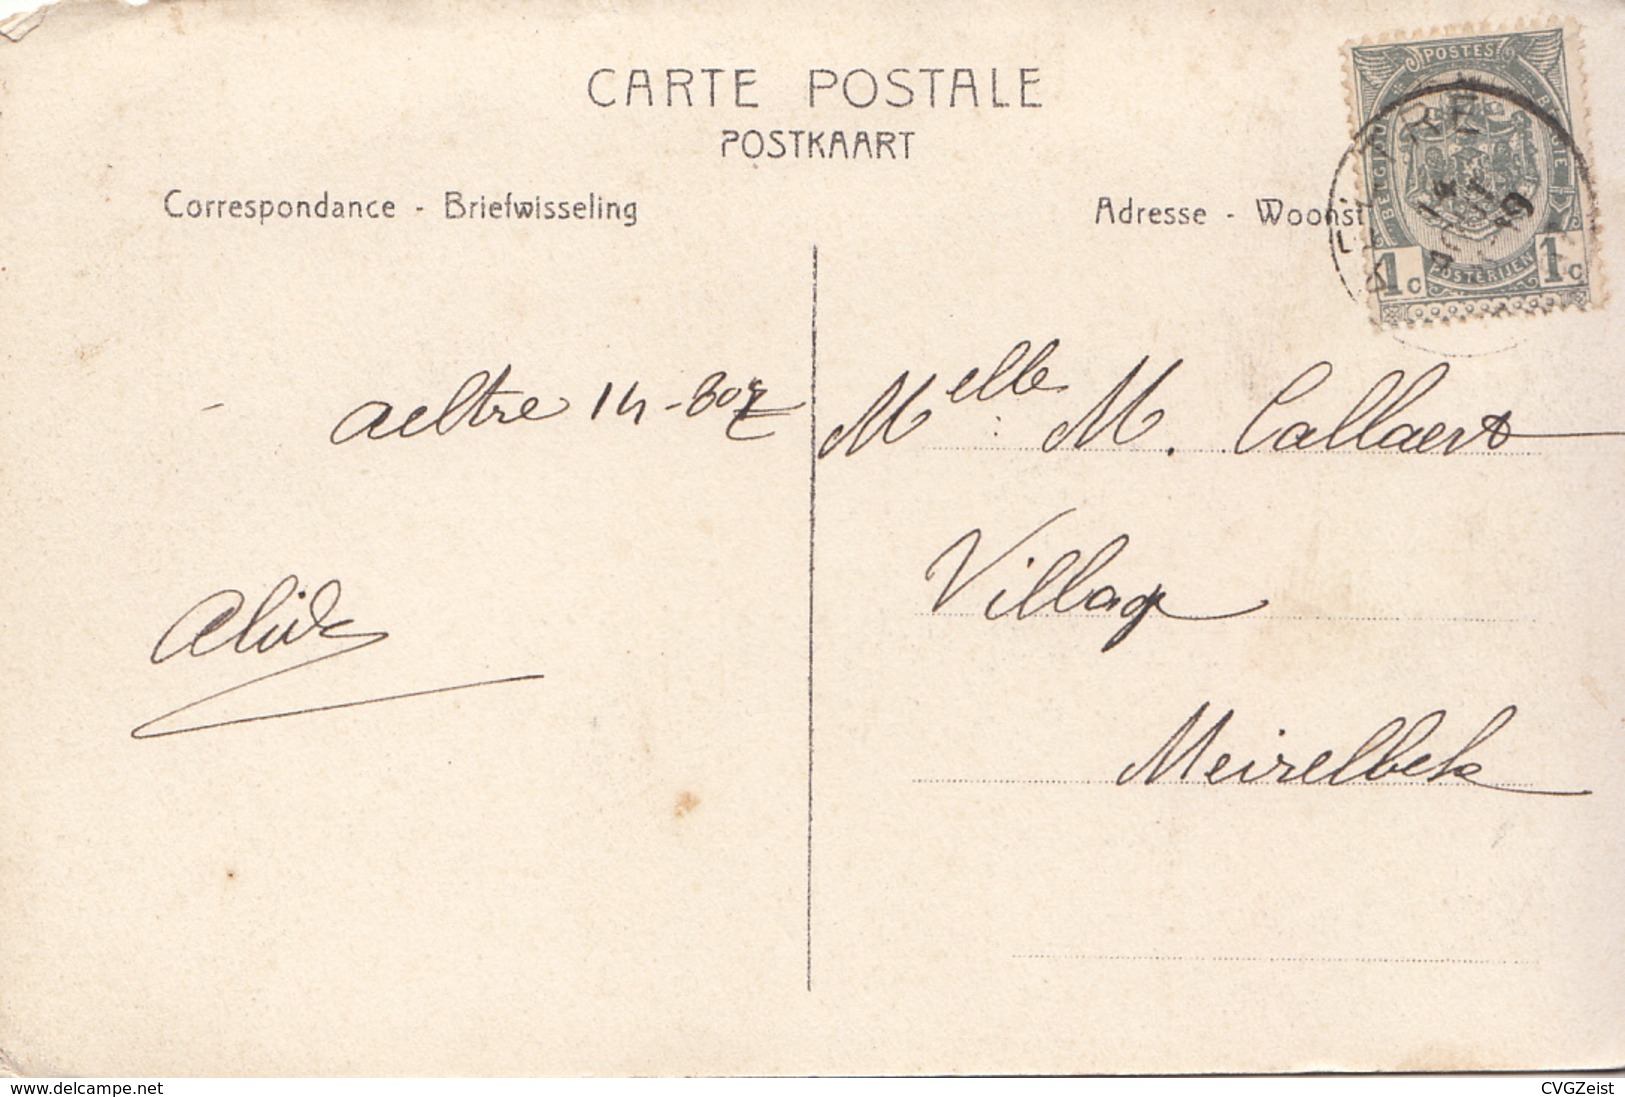 CARTE POSTALE
POSTKAART
Correspondance - Briefwisseling
Adresse - Woonst
POSTES
BELGIQUE
BELGIE
POSTERIJEN
1c 1c
aeltre 14-
Melle M. Callaert
Village
Meirelbeke
www.delcampe.net
CVGZeist